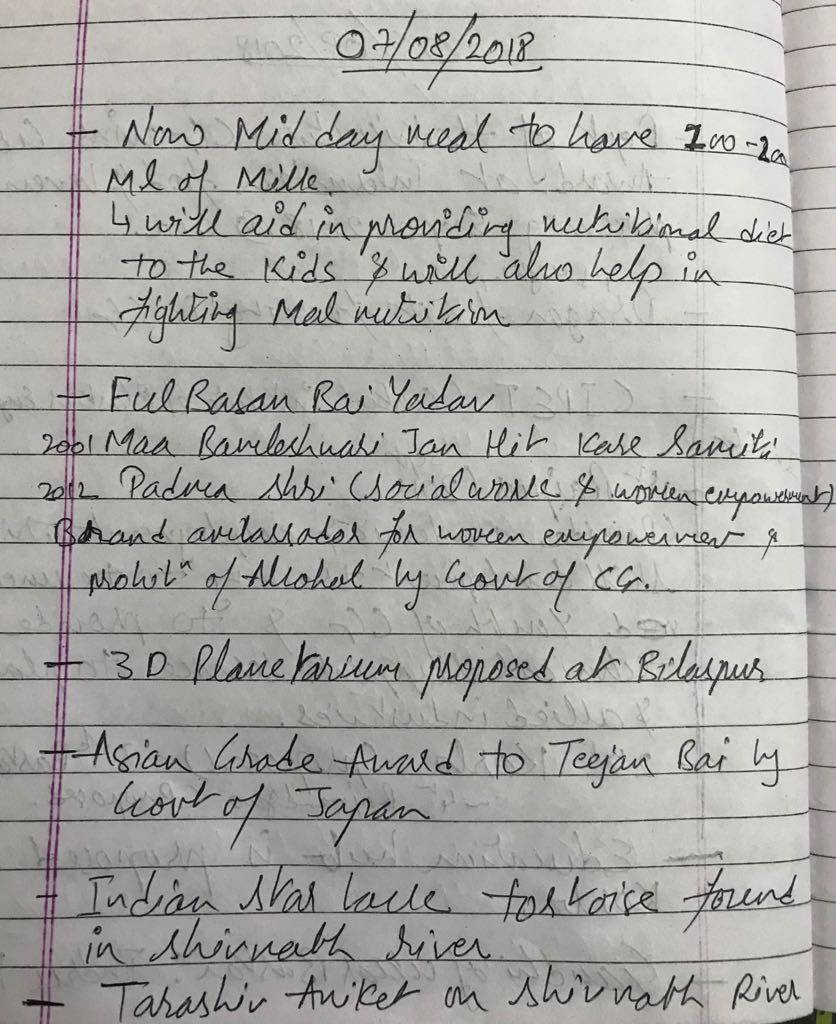 07/08/2018
- Now Mid day meal to have 100-200
Ml of Milk.
↳ will aid in providing nutritional diet
to the Kids & will also help in
fighting Mal nutrition
- Ful Basan Bai Yadav
2001 Maa Bamleshwari Jan Hit Kare Samiti
2012 Padma Shri (social work & women empowerment)
Brand ambassador for women empowerment &
prohibⁿ of Alcohol by Govt of CG.
- 3D Planetarium proposed at Bilaspur
- Asian Grade Award to Teejan Bai by
Govt of Japan
- Indian star tortoise found
in Shivnath river
- Tarashiv Aniket on Shivnath River